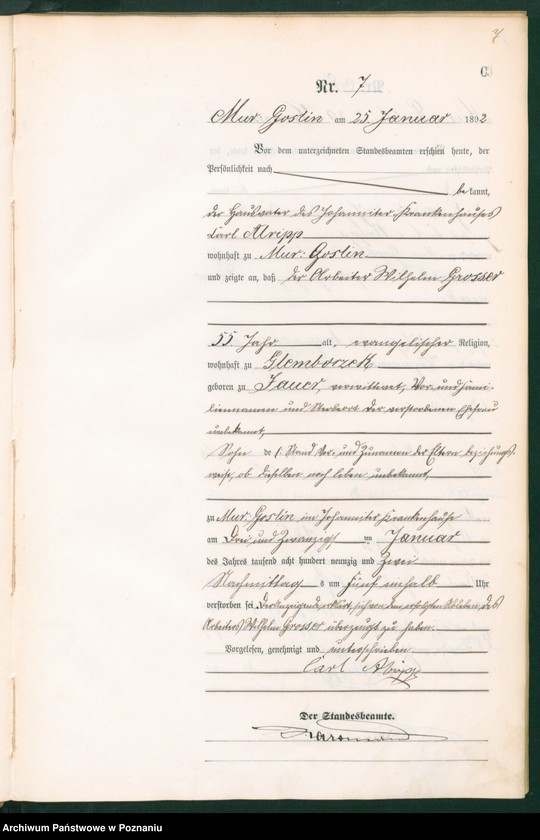 7
C
Nr. 7
Mur: Goslin am 25 Januar 1892
Vor dem unterzeichneten Standesbeamten erschien heute, der
Persönlichkeit nach
bekannt,
der Hausvater des Johanniter-Krankenhauses
Carl Alripp
wohnhaft zu Mur: Goslin
und zeigte an, daß der Arbeiter Wilhelm Grosser
55 Jahr alt, evangelischer Religion,
wohnhaft zu Glemboczek
geboren zu Jauer, verwittwet, Vor und Fami-
liennamen und Sterbeort der verstorbenen Ehefrau
unbekannt,
Sohn de Stand Vor- und Zunamen der Eltern beziehungs-
weise, ob dieselben noch leben unbekannt,
zu Mur: Goslin im Johanniter Krankenhause
am Drei und Zwanzigst en Januar
des Jahres tausend acht hundert neunzig und Zwei
Nachmittag s um fünf einhalb Uhr
verstorben sei, Der Anzeigende erklärt, sich von dem erfolgten Ableben des
Arbeiters Wilhelm Grosser überzeugt zu haben.
Vorgelesen, genehmigt und unterschrieben
Carl Alripp
Der Standesbeamte.
Archiwum Państwowe w Poznaniu